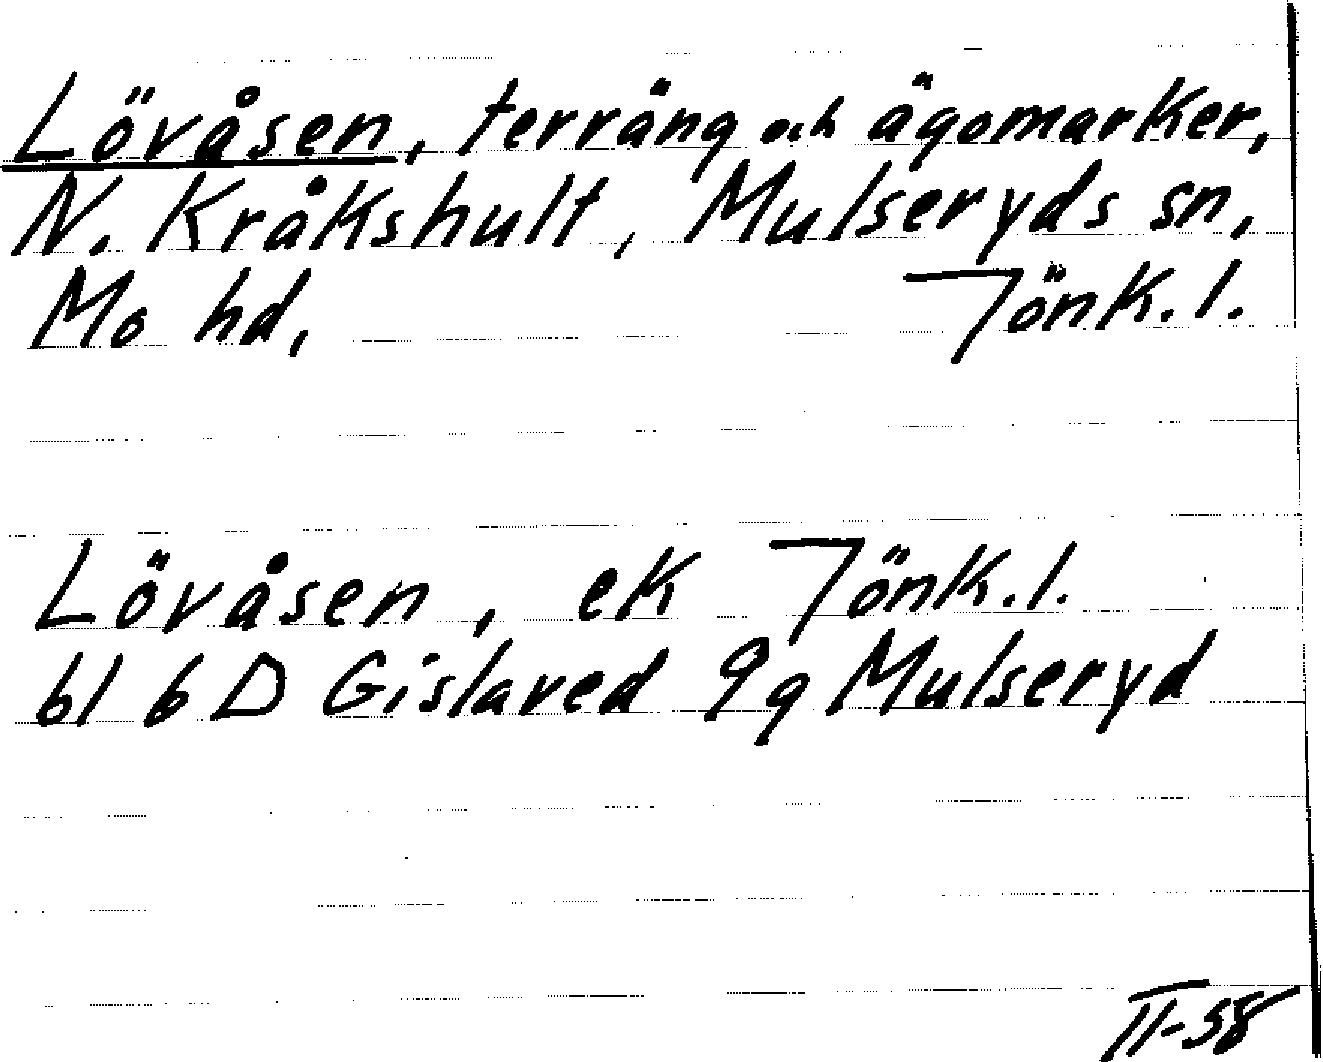 Lövåsen, terräng och ägomarker,
N. Kråkshult, Mulseryds sn,
Mo hd, Jönk. l.
Lövåsen, ek Jönk. l.
bl 6 D Gislaved 9g Mulseryd
II-58